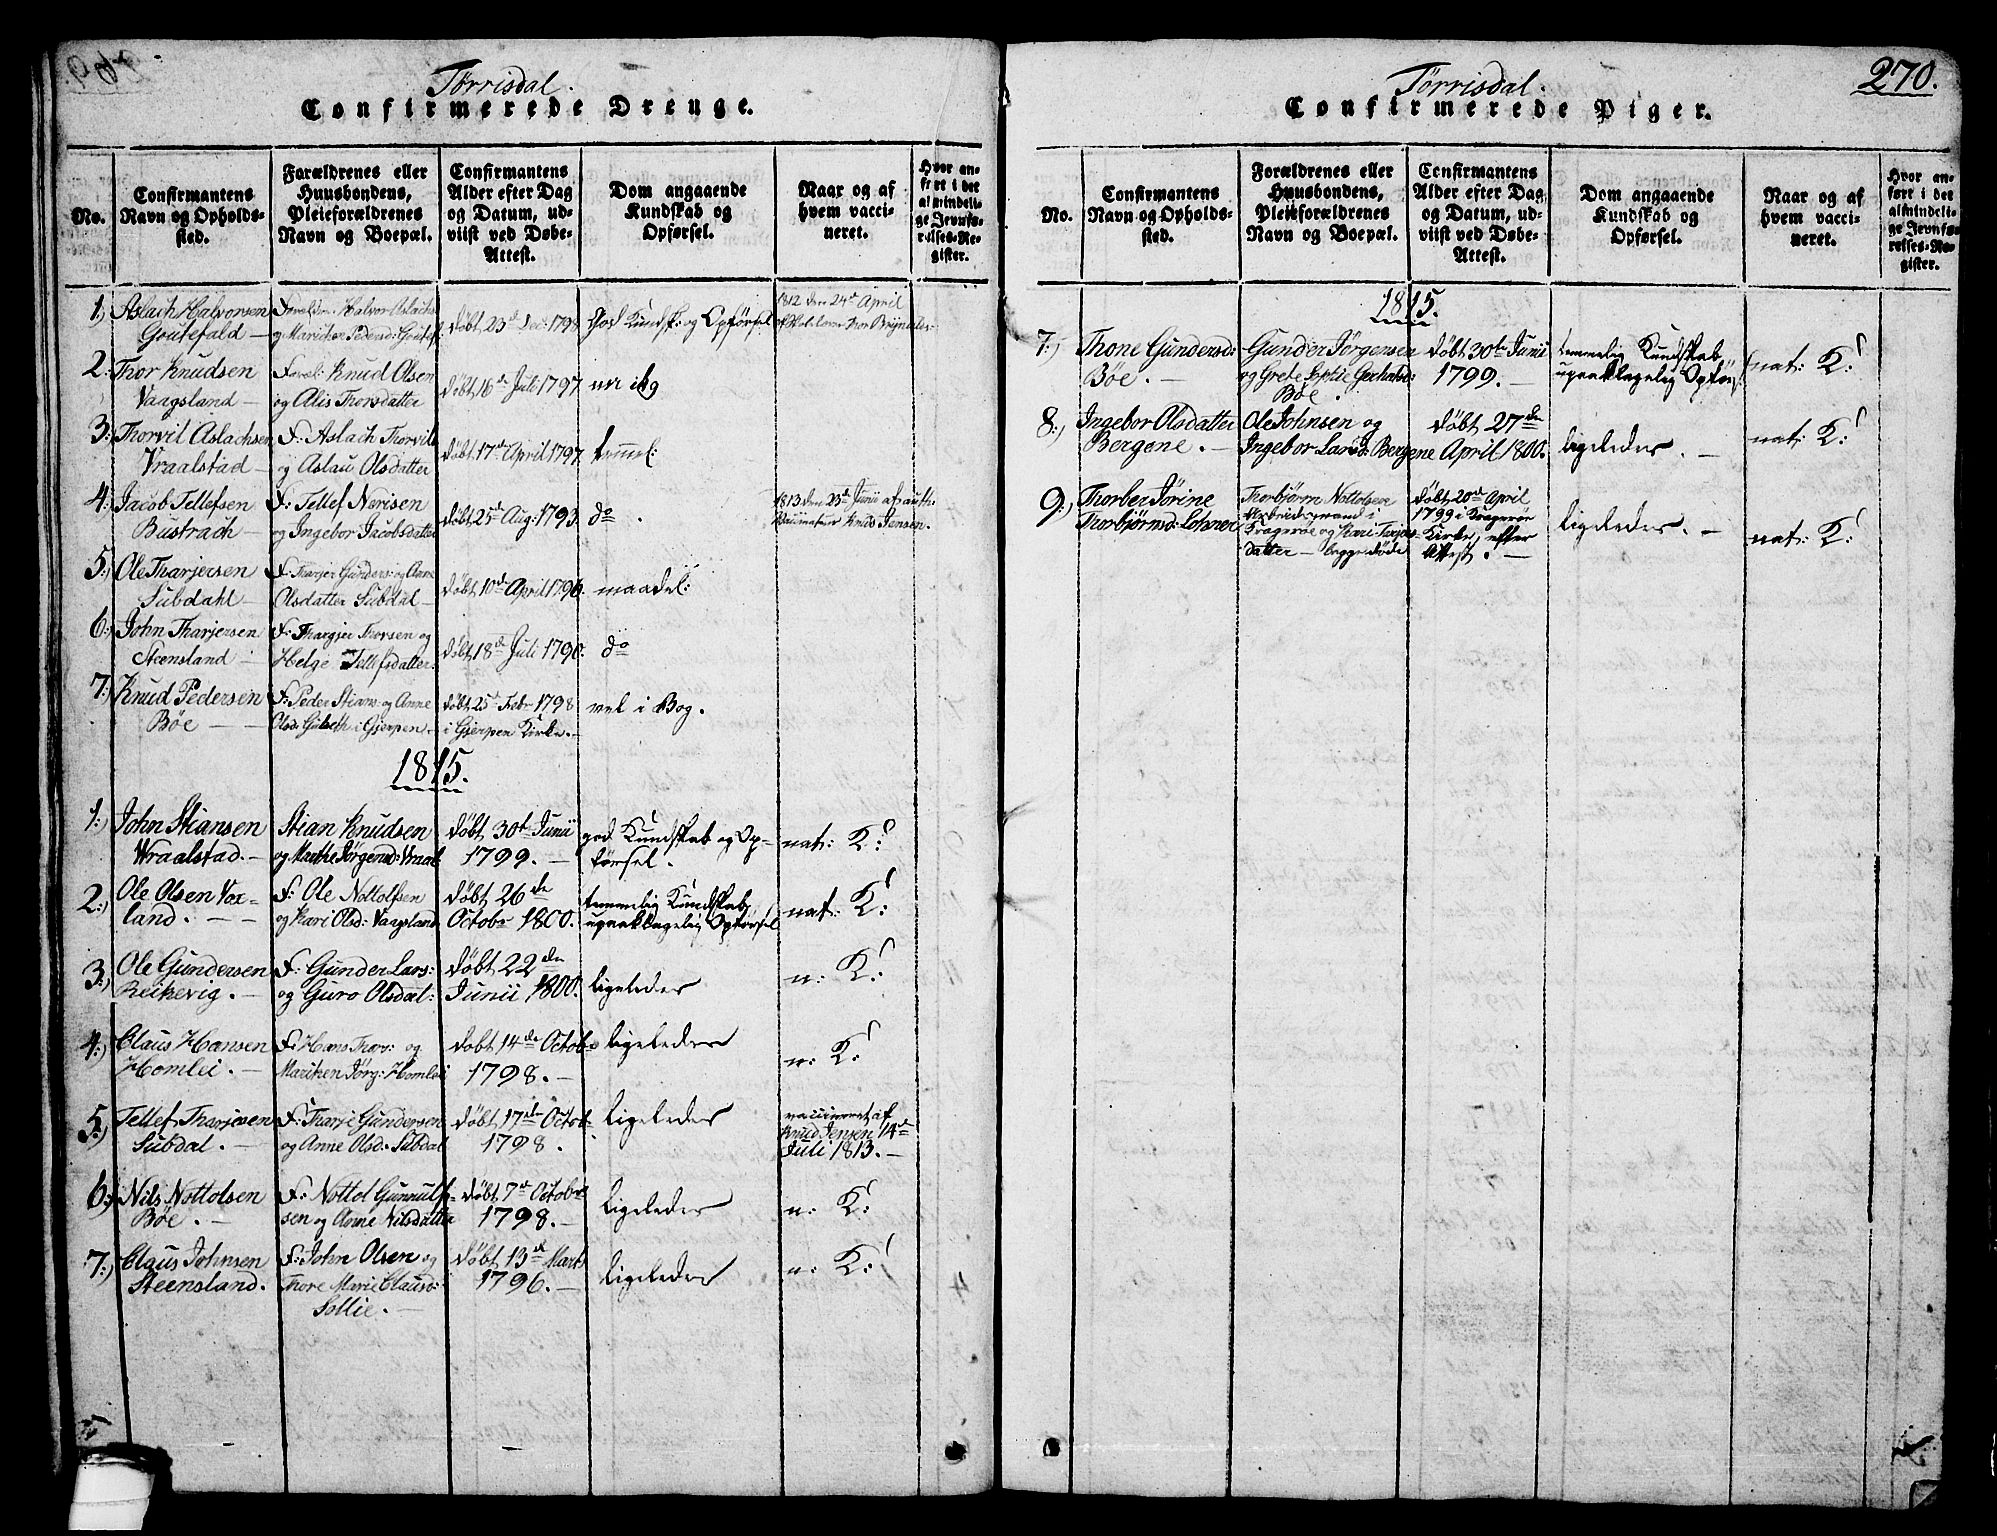 Tørrisdal.
Confirmerede Drenge.
No.
Confirmantens
Navn og Opholds-
sted.
Forældrenes eller
Huusbondens,
Pleieforældrenes
Navn og Boepæl.
Confirmantens
Alder efter Dag
og Datum, ud-
viist ved Døbe-
Attest.
Dom angaaende
Kundskab og
Opførsel.
Naar og af
hvem vacci-
neret.
Hvor an-
ført i det
almindeli-
ge Jevnfø-
relses-Re-
gister.
1.) Aslach Halvorsen
Goutefald —
Halvor Aslachs
døbt 23d Dec: 1798
God Kundsk: og Opførsel
1812 den 24de April
2: Thor Knudsen
Vaagsland —
Foræl: Knud Olsen
og Alis Thorsdatter
døbt 16de Juli 1797
3:) Thorvil Aslachsen
Vraalstad —
F: Aslach Thorvils
og Aslau Olsdatter
døbt 17de April 1797
temmel:
4: Jacob Tellefsen
Bustrach —
F: Tellef Nerisen
og Ingebor Jacobsdatter
døbt 25de Aug: 1793.
do .
1813 den 23de Junii af auth:
Vaccinateur Knud Jensen.
5:) Ole Tharjersen
Subdahl —
F: Tharjer Gunders: og Anne
Olsdatter Subdal —
døbt 10de April 1796.
maadel:
6: John Tharjersen
Steensland —
F: Thargjer Thorsen og
Helge Tellefsdatter.
døbt 18de Juli 1790.
do
7:) Knud Pedersen
Bøe —
F: Peder Stians: og Anne
Olsd: Gulseth i Gjerpen.
døbt 25de Febr 1798
i Gjerpen Kirke. —
vel i Bog.
1815.
1:) John Stiansen
Vraalstad. —
Stian Knudsen
og Marthe Jørgensd: Vraal
døbt 30te Junii
1799. —
god Kundskab og Op-
førsel.
nat: K:
2:) Ole Olsen Vor-
land. —
F: Ole Nottolfsen
og Kari Olsd: Vaagsland
døbt 26de
Octobr 1800.
temmelig Kundskab,
upaaklagelig Opførsel
nat: K:
3:) Ole Gundersen
Reikevig. —
F: Gunder Lars:
og Guro Olsdal:
døbt 22de
Junii 1800.
ligeledes
n: K:
4:) Claus Hansen
Homlei. —
F: Hans Thors: og
Mariken Jørg: Homlei
døbt 14de Octob:
1798. —
ligeledes
n: K:
5:) Tellef Tharjesen
Subdal. —
F: Tharje Gundersen
og Anne Olsd: Subdal
døbt 17de Octob:
1798.
ligeledes
vaccineret af
Knud Jensen 14de
Juli 1813. —
6:) Nils Nottolsen
Bøe. —
F: Nottol Gunnulf-
sen og Anne Nilsdatter
døbt 7de Octobr
1798. —
ligeledes
n: K:
7:) Claus Johnsen
Steensland.
F: John Olsen og
Thore Marie Clausd:
Sollie. —
døbt 13de Marts
1796. —
ligeledes
n: K:
Tørrisdal.
270.
Confirmerede Piger.
No.
Confirmantens
Navn og Opholds-
sted.
Forældrenes eller
Huusbondens,
Pleieforældrenes
Navn og Boepæl.
Confirmantens
Alder efter Dag
og Datum, ud-
viist ved Døbe-
Attest.
Dom angaaende
Kundskab og
Opførsel.
Naar og af
hvem vacci-
neret.
Hvor an-
ført i det
almindeli-
ge Jevnfø-
relses-Re-
gister.
1815.
7:) Thone Gundersd:
Bøe. —
Gunder Jørgensen
og Grete Sophie
Bøe.
døbt 30te Junii
1799. —
temmelig Kundskab,
upaaklagelig Opførs:
nat: K:
8:) Ingebor Olsdatter
Bergene. —
Ole Johnsen og
Ingebor Larsd: Bergene
døbt 27de
April 1800.
ligeledes. —
nat: K:
9:) Thorber Jørine
Thorbjørnsd: Lohner
Thorbjørn Nottolsen
Arbeidsmand i
Kragerøe og Kari Tarjes-
datter — begge døde
døbt 20de April
1799 i Kragerøe
Kirke, efter
Attest. —
ligeledes. —
nat: K: